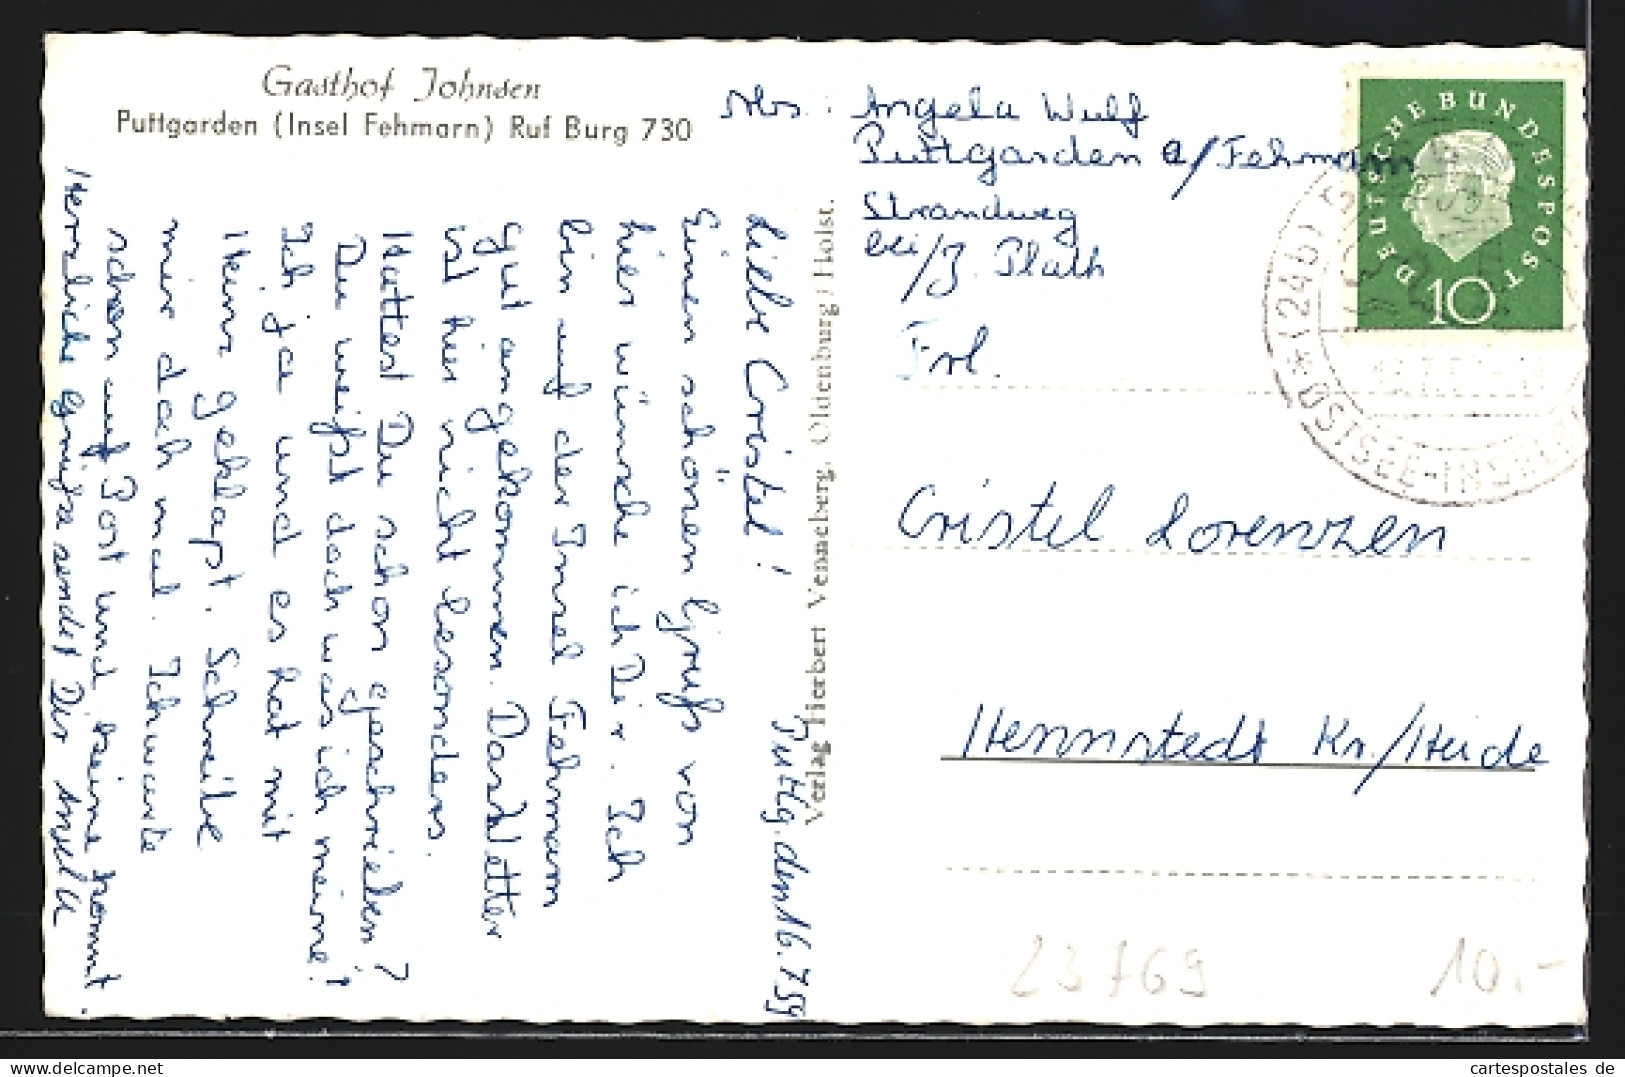 Gasthof Johnsen
Puttgarden (Insel Fehmarn) Ruf Burg 730
Puttg. dem 16.7.59
Liebe Cristel!
Einen schönen Gruß von
hier wünsche ich Dir. Ich
bin auf der Insel Fehmarn
gut angekommen. Das Wetter
ist hier nicht besonders.
Hattest Du schon geschrieben?
Du weißt doch was ich meine!
Ich ja und es hat mit
Heinr geklapt. Schreibe
mir doch mal. Ich warte
schon auf Post und keine kommt.
Herzliche Grüße sendet Dir
Verlag Herbert Venneberg, Oldenburg/Holst.
Abs.: Angela Wulf
Puttgarden a/Fehmarn
Strandweg
bei/J. Plath
Frl.
Cristel Lorenzen
Hennstedt Kr./Heide
DEUTSCHE BUNDESPOST
10
(24b)
OSTSEE-INSEL
23769
10.-
www.cartespostales.de